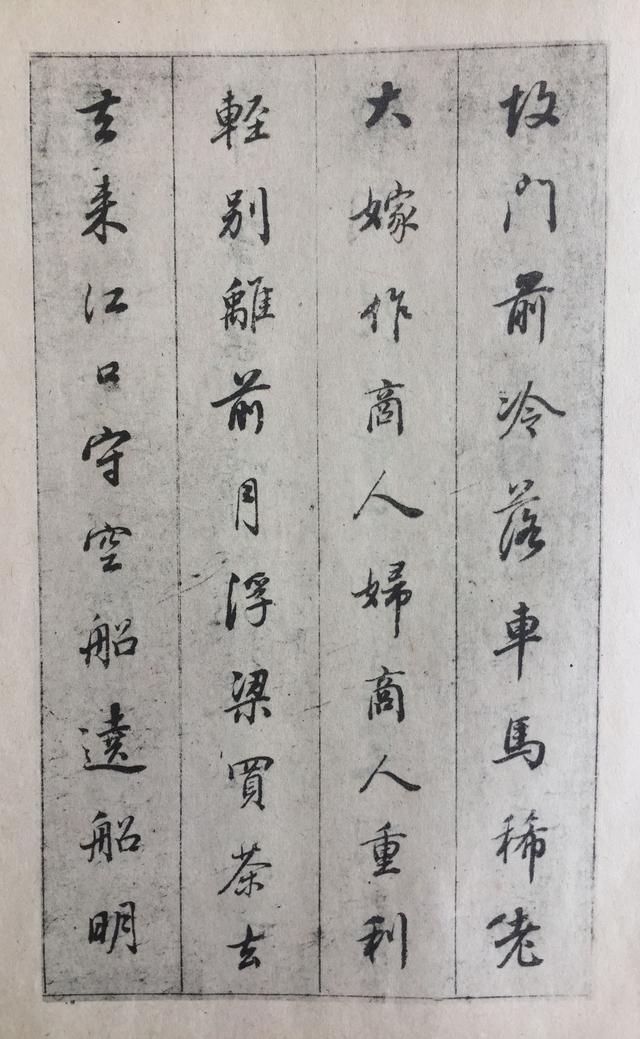 故門前冷落車馬稀老
大嫁作商人婦商人重利
輕別離前月浮梁買茶去
去來江口守空船遶船明